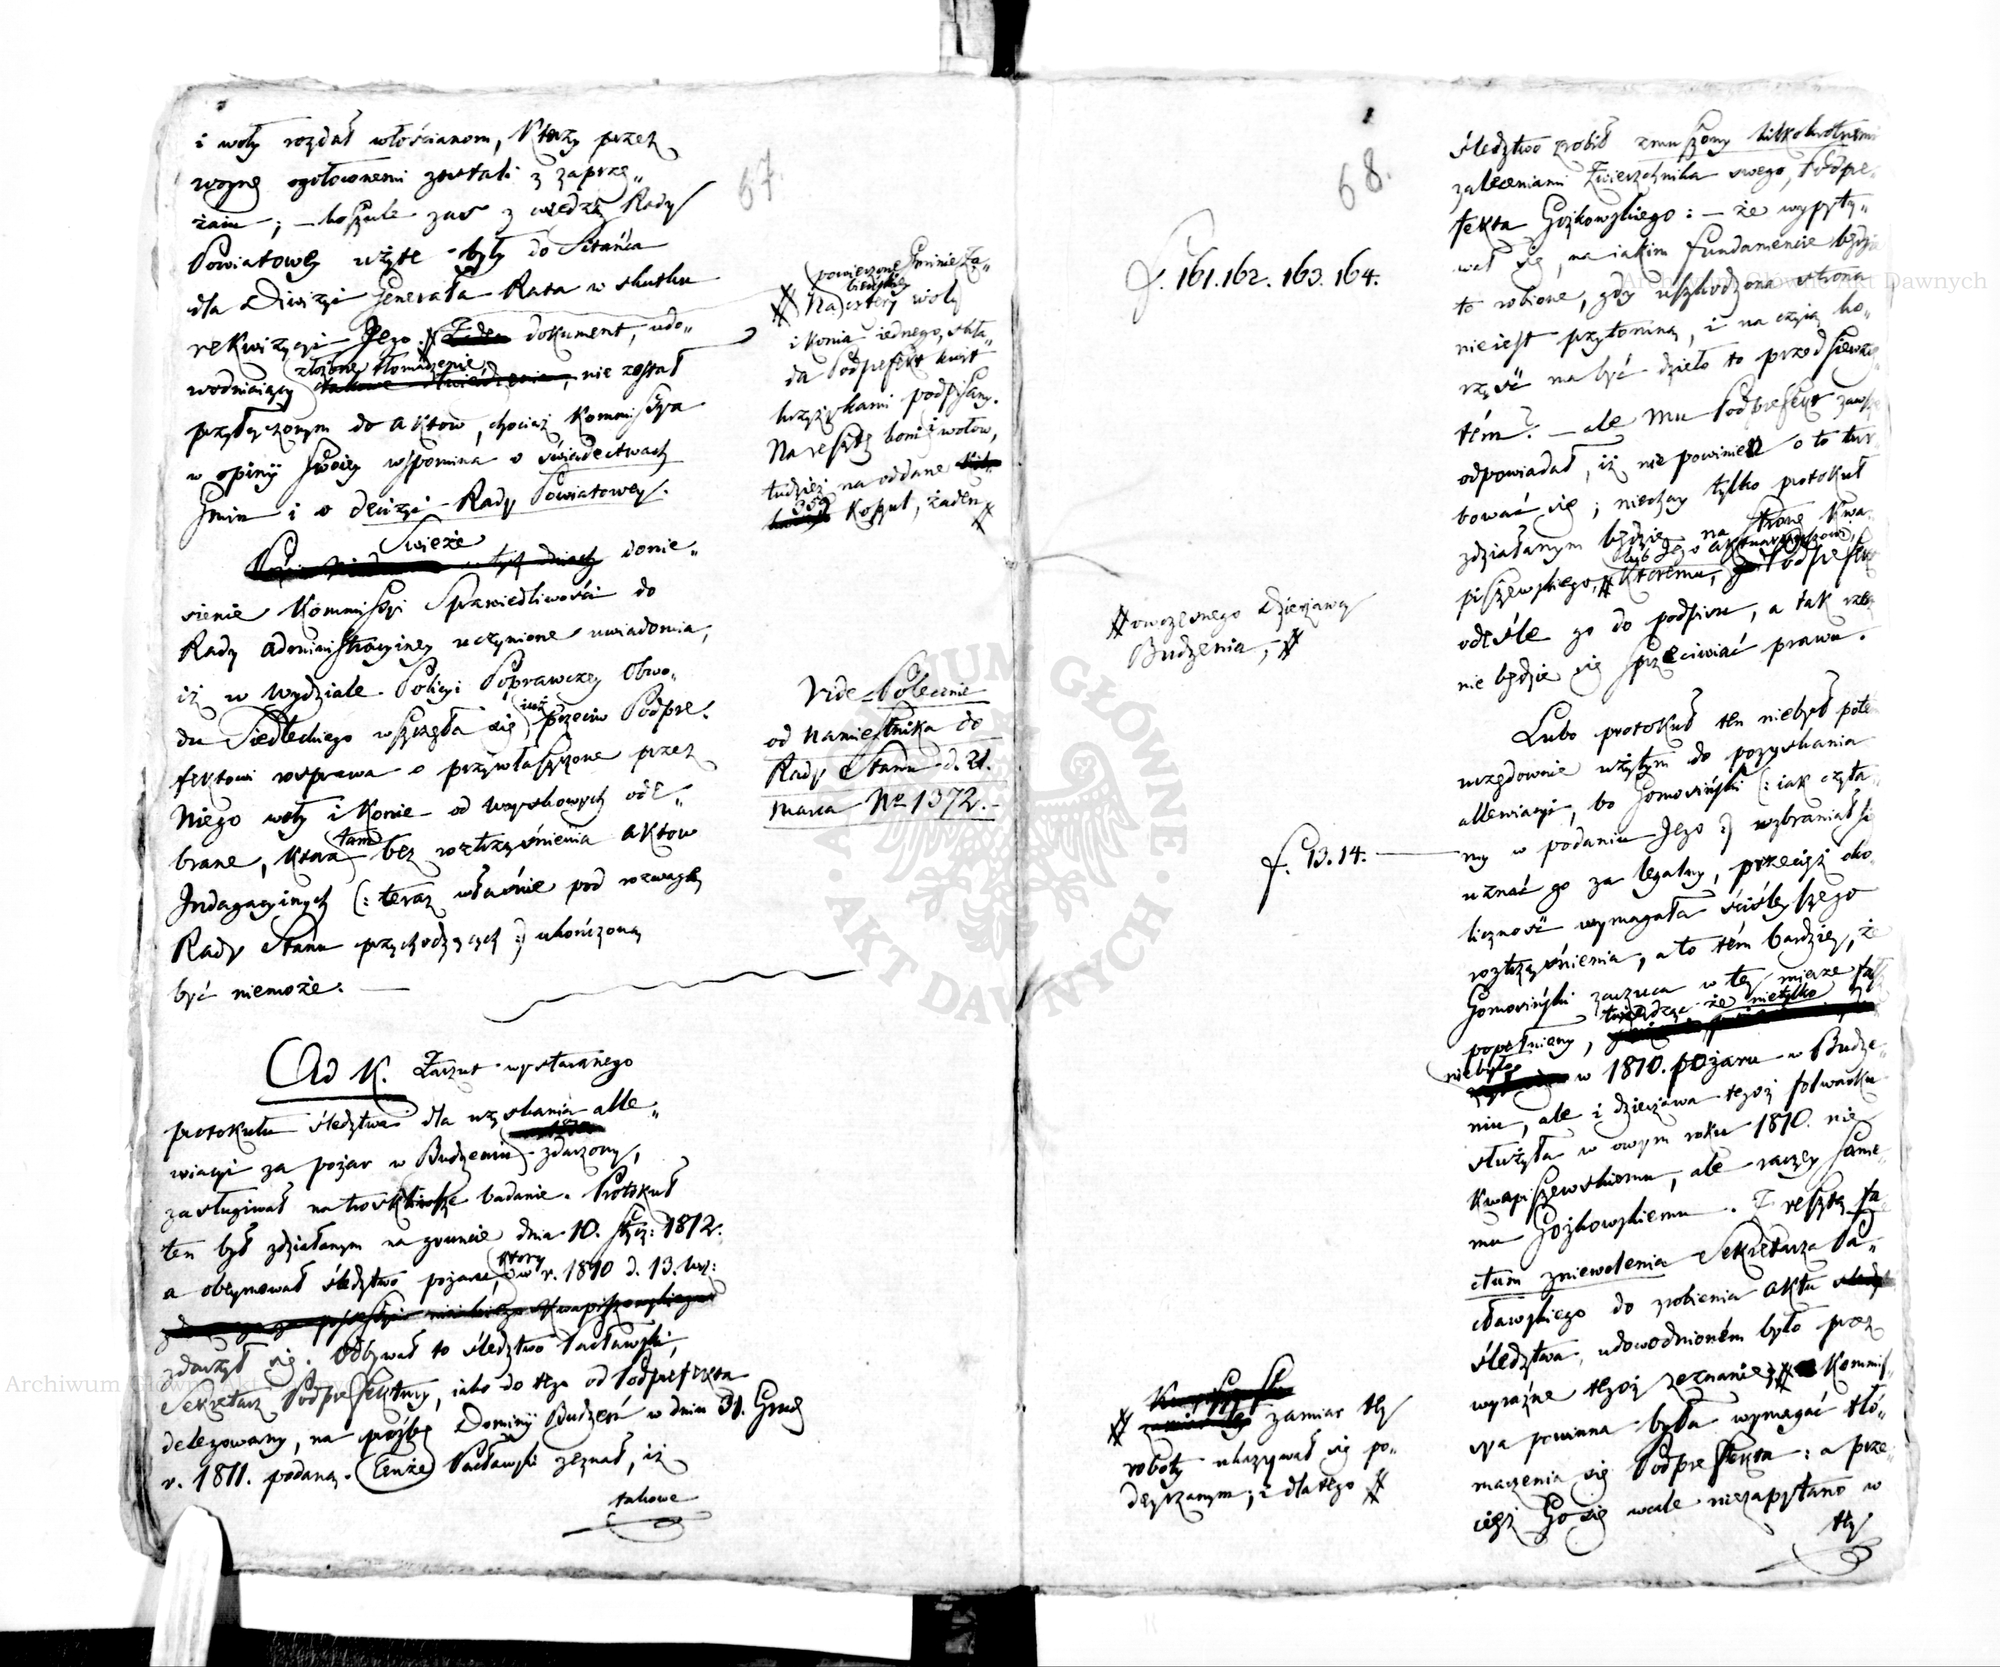 67.
i woły rozdał włościanom, którzy przez
woynę ogołoconemi zostali z zaprzę„
żaiu; – koszule zaś z wiedzą Rady
Powiatowey użyte były do Sitańca
dla Diwizyi Generała Kara w skutku
rekwizycyi Jego. # dokument, udo„
wodniaiący złożone tłomaczenie, nie został
przyłączonym do aktow, chociaż Kommissya
w opinij swoiey wspomina o świadectwach
Gmin i o decizyi Rady Powiatowey.
Świeże donie„
sienie Kommissyi Sprawiedliwości do
Rady Administracyiney uczynione uwiadomia,
iż w Wydziale Policyi Poprawczey Obwo„
du Siedleckiego wszczęła się iuż przeciw Podpre„
fektowi rosprawa o przywłaszczone przez
Niego woły i konie od Woyskowych ode„
brane, ktora tam bez roztrząśnienia aktow
Indagacyinych (: teraz właśnie pod rozwagę
Rady Stanu przychodzących :) ukończoną
być niemoże. —
powierzone Gminie Za„
# Na cztery woły
i konia iednego, skła„
da Podprefekt kwit
krzyżykami podpisany.
Na resztę koni i wołow,
tudzież na oddane
359 koszul, żaden #
Vide Polecenie
od Namiestnika do
Rady Stanu d. 21.
Marca No 1372. –
Ad K. Zarzut wystaranego
protokułu śledztwa dla uzyskania alle„
wiacyi za pożar w Budzeniu zdarzony,
zasługiwał na troskliwsze badanie. Protokuł
ten był zdziałanym na gruncie dnia 10. Stycz: 1812.
a obeymował śledztwo pożaru, ktory w r. 1810 d. 13. Wrz:
zdarzył się. Odbywał to śledztwo Pacławski,
Sekretarz Podprefektury, iako do tego od Podprefekta
delegowany, na prośbę Dominij Budzeń w dniu 31. Grud
r. 1811. podaną. Tenże Pacławski zeznał, iż
takowe
68.
f. 161. 162. 163. 164.
śledztwo zrobił zmuszony kilkokrotnemi
zaleceniami Zwierzchnika swego, Podpre„
fekta Gozkowskiego: – że wypyty„
wał się, na iakim fundamencie będzie
to robione, gdy uszkodzona strona
nieiest przytomną, i na czyią ko„
rzyść ma być dzieło to przedsiewzię
tém? – ale mu Podprefekt zawsze
odpowiadał, iż nie powinien o to tur„
bować się; niechay tylko protokuł
zdziałanym będzie na stronę Kwa„
piszewskiego, # któremu, Podprefekt
odeśle go do podpisu, a tak rzecz
nie będzie się sprzeciwiać prawu.
# owczesnego dzierżawcy
Budzenia, #
Lubo protokuł ten niebył potem
urzędownie użytym do pozyskania
allewiacyi, bo Gomosiński (: iak czyta„
my w podaniu Jego :) wzbraniał się
uznać go za legalny, przecięż oko„
liczność wymagała ściśleyszego
roztrząśnienia, a to tém bardziey, że
Gomosiński zarzuca w tey mierze fałsz
popełniony, twierdząc że nietylko
niebyło w 1810. pożaru w Budze„
niu, ale i dzierżawa tegoż folwarku
służyła w owym roku 1810. nie
Kwapiszewskiemu, ale raczey same„
mu Gozkowskiemu. Z resztą fa
ctum zniewolenia Sekretarza Pa„
cławskiego do zrobienia aktu
śledztwa, udowodnioném było przez
wyraźne tegoż zeznanie; # Kommis„
sya powinna była wymagać tłó„
maczenia się Podprefekta: a prze
cięż Go się wcale niezapytano w
tey
f. 13. 14. —
# zamiar tey
roboty ukazywał się po„
deyrzanym; i dlatego #
ARCHIWUM GŁÓWNE · AKT DAWNYCH ·
Archiwum Główne Akt Dawnych
Archiwum Główne Akt Dawnych